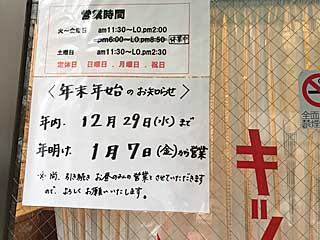 営業時間
火～金曜日 am11:30～LO.pm2:00
pm6:00～LO.pm8:50 休業中
土曜日 am11:30～LO.pm2:30
定休日 日曜日．月曜日．祝日
〈年末年始のお知らせ〉
年内. 12月29日(水)まで
年明け. 1月7日(金)から営業
※尚、引き続きお昼のみの営業とさせていただきます
ので、よろしくお願いいたします。
キッ
全面
禁煙